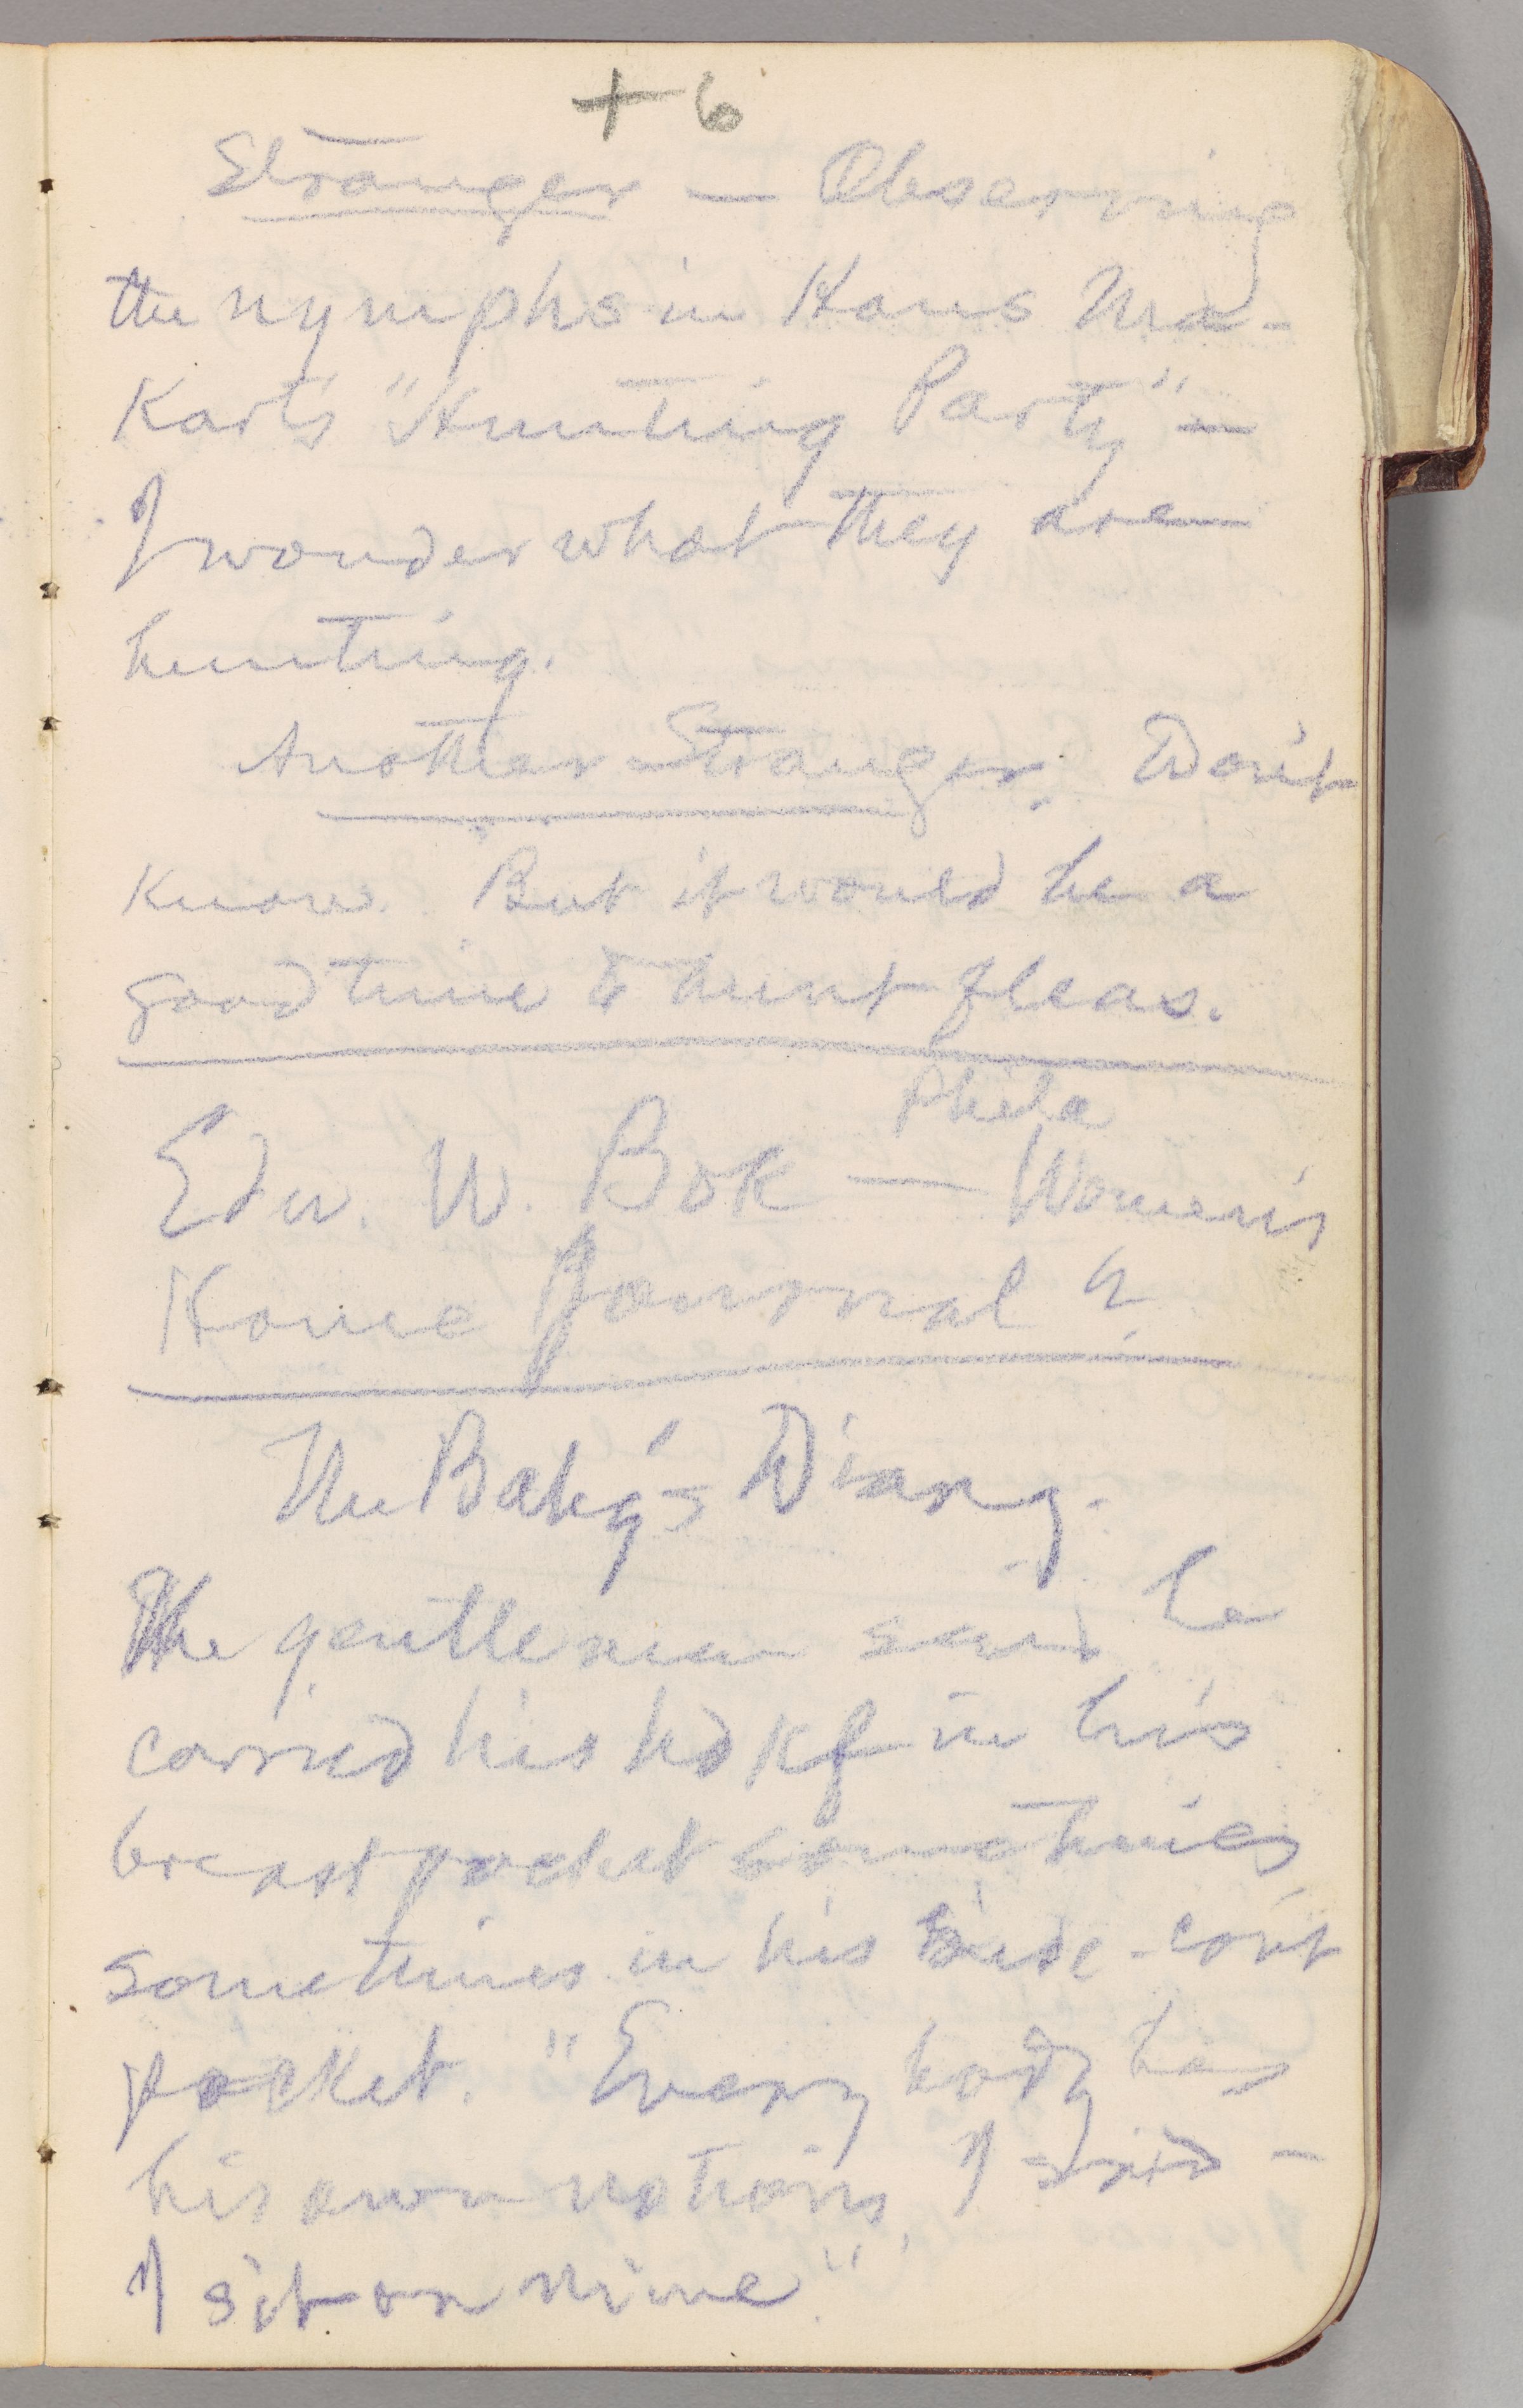 + 6
Stranger — Observing
the nymphs in Hans Ma-
kart's "Hunting Party" —
I wonder what they are
hunting.
Another Stranger. Don't
know. But it would be a
good time to hunt fleas.
Phila
Edw. W. Bok — Women's
Home Journal ?
The Baby's Diary.
The gentleman said he
carried his hdkf in his
breast pocket sometimes,
sometimes in his side-coat
pocket. "Every body has
his own notions, I said –
I sit on mine."